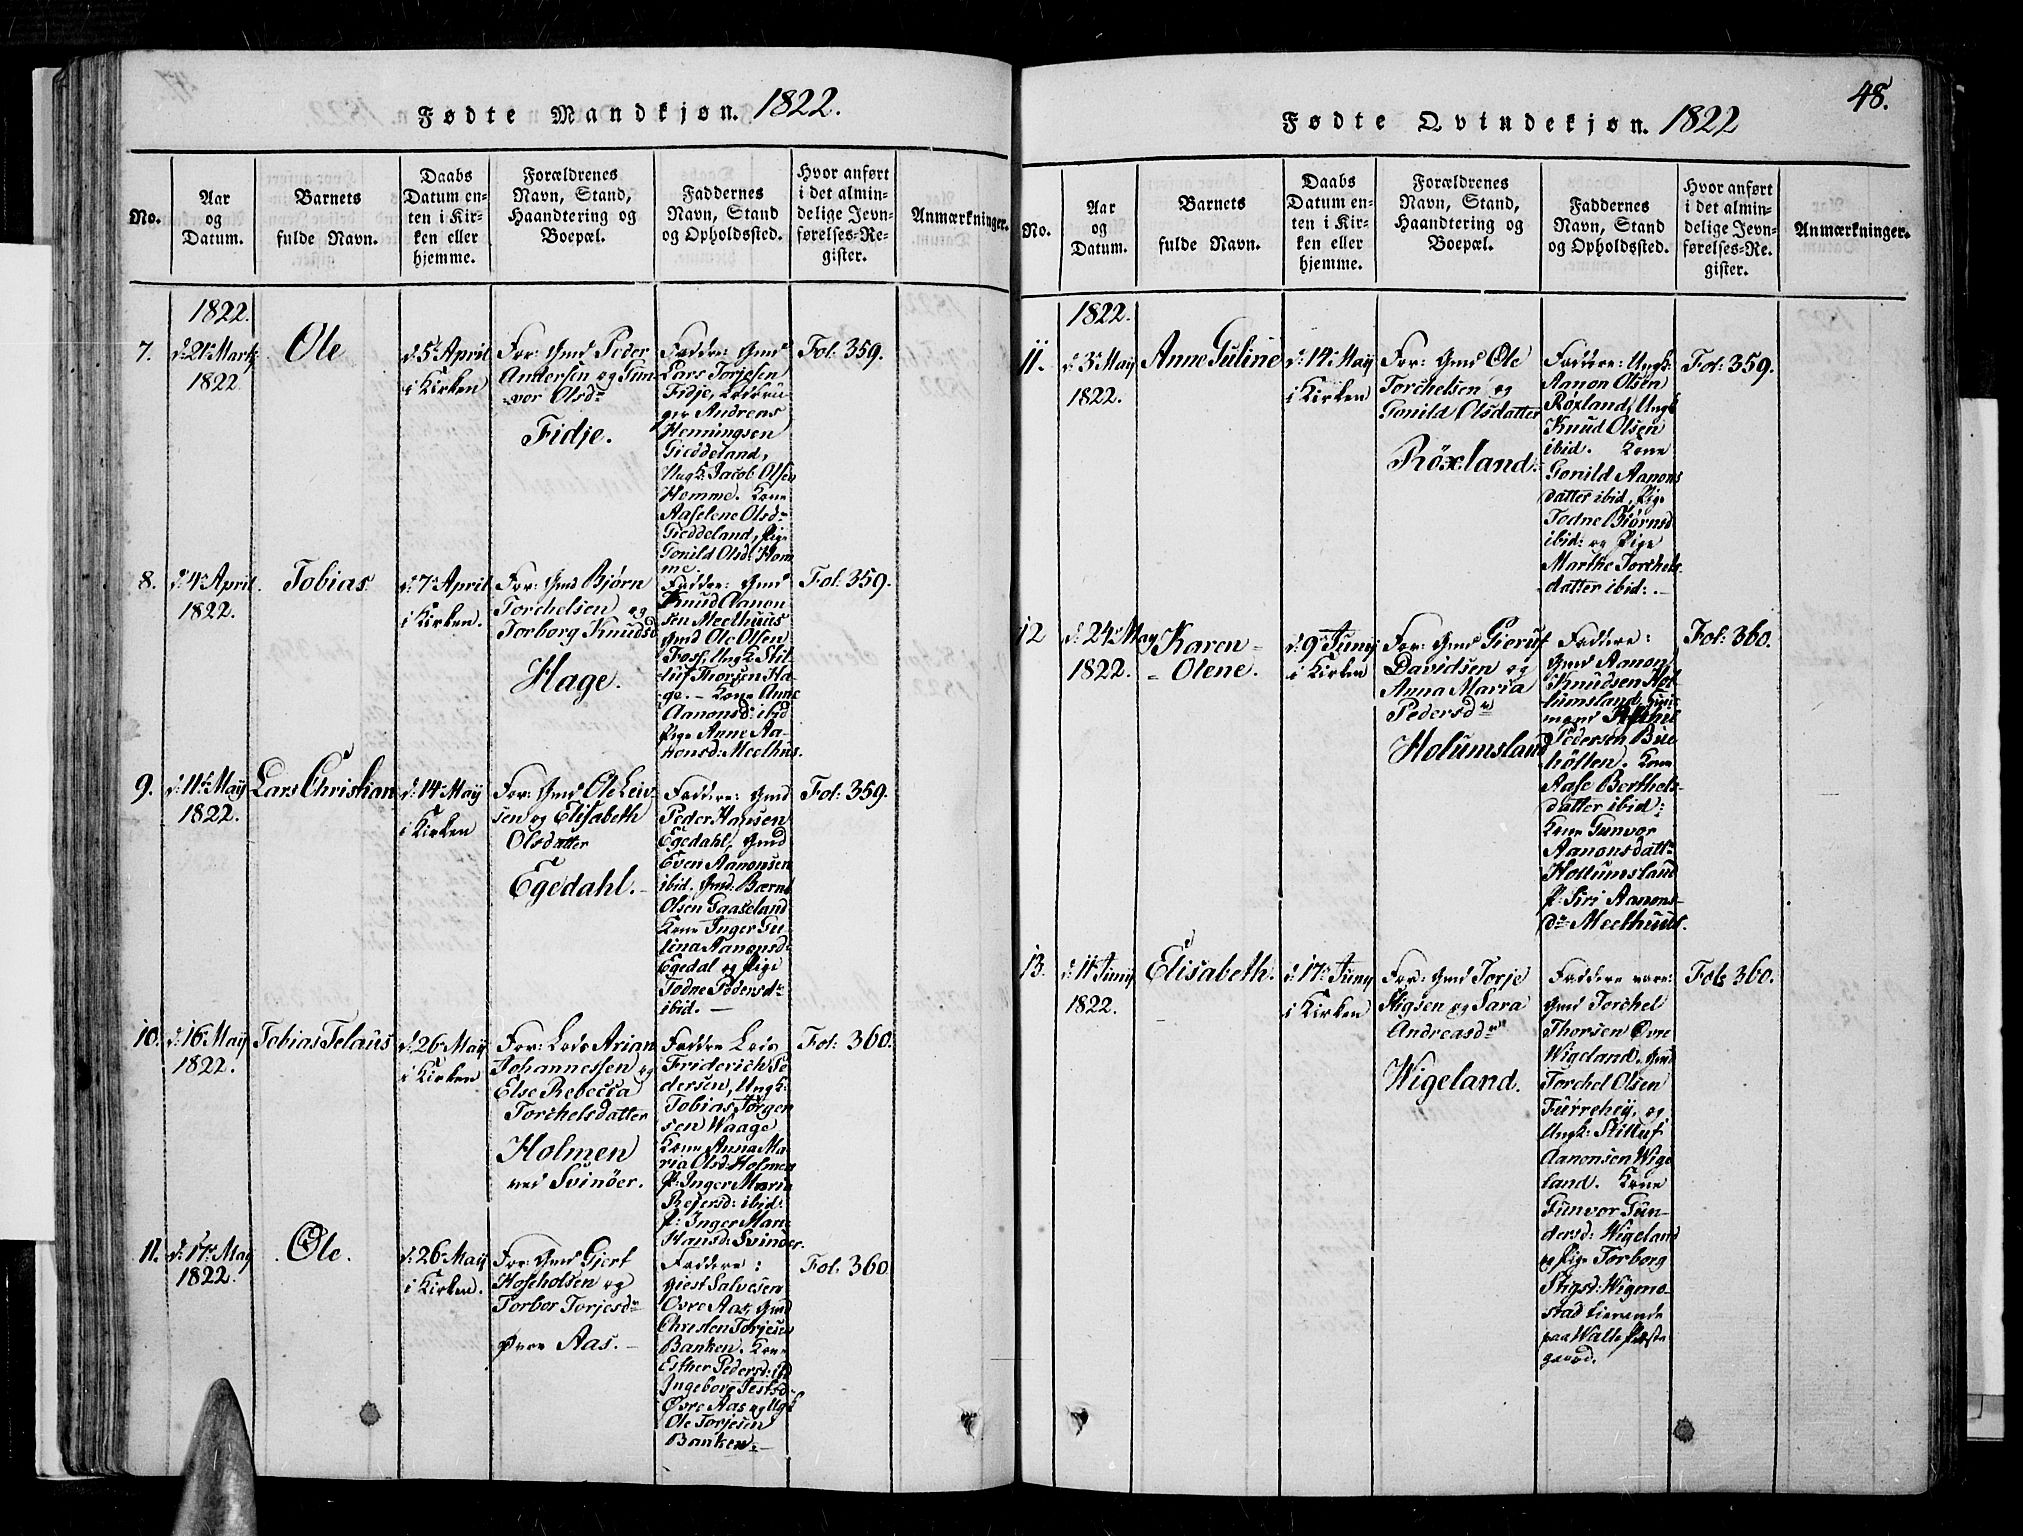 Fødte Mandkjøn. 1822.
No.
Aar
og
Datum.
Barnets
fulde Navn.
Daabs
Datum en-
ten i Kir-
ken eller
hjemme.
Forældrenes
Navn, Stand,
Haandtering og
Boepæl.
Faddernes
Navn, Stand
og Opholdssted.
Hvor anført
i det almin-
delige Jevn-
førelses-Re-
gister.
Anmærkninger.
1822.
7.
d: 21 Martz
1822
Ole
d: 5 April
i Kirken
For: Gmd Peder
Andersen og Gun-
vor Olsdr
Fidje.
Faddere: Gmd
Lars Torjesen
Fidje,
ger Andreas
Henningsen
Gieddeland,
Ungk: Jacob Olsen
Homme. Kone
Aaselene Olsdr
Gieddeland, Pige
Gonild Olsd: Hom-
me.
Fol: 359.
8.
d: 4 April
1822.
Tobias
d: 7 April
i Kirken.
For: Gmd Bjørn
Torchelsen og
Torborg Knudsd
Hage.
Faddere: Gmd
Knud Aanon-
sen Meelhuus
Gmd Ole Olsen
Foss, Ungk Stil-
luf Thorsen Ha-
ge. – Kone Anne
Aanonsd: ibid
Pige Anne Aa-
nonsd: Meelhus.
Fol: 359.
9.
d: 11 May
1822.
Lars Christian
d: 14 May
i Kirken
For: Gmd Ole Leiv-
sen og Elisabeth
Olsdatter
Egedahl. –
Faddere: Gmd
Peder Hansen
Egedahl, Gmd
Even Aanonsen
ibid. Gmd: Bærnt
Olsen Gaaseland
Kone Inger Gu-
lina Aanonsd:
Egedal og Pige
Todne Pedersdr
ibid. –
Fol: 359.
10.
d: 16 May
1822.
Tobias Telaus
d: 26 May
i Kirken
For: Lods Arian
Johannessen og
Else Rebecca
Torchelsdatter
Holmen
ved Svinöer.
Faddere Lods
Friderich Pe-
dersen, Ungk:
Tobias Jørgen
sen Waage
Kone Anna Ma-
ria Olsd: Holmen
P: Inger Maria
Rejersd: ibid.
P: Inger Mari
Hansd: Svinöer.
Fol: 360.
11.
d: 17 May
1822.
Ole.
d: 26 May
i Kirken.
For: Gmd Gjert
Hoseholsen og
Torbor Torjesdr
Øvre Aas. –
Faddere:
Giest Salvesen
Øvre Aas, Gmd
Christen Torjesen
Banken. Kone
Esther Pedersd: ibd
Ingeborg Jestsd
Øvre Aas og Ugk
Ole Torjesen
Banken. –
Fol: 360
48.
Fødte Qvindekjøn. 1822
No.
Aar
og
Datum.
Barnets
fulde Navn.
Daabs
Datum en-
ten i Kir-
ken eller
hjemme.
Forældrenes
Navn, Stand,
Haandtering og
Boepæl.
Faddernes
Navn, Stand
og Opholdssted.
Hvor anført
i det almin-
delige Jevn-
førelses-Re-
gister.
Anmærkninger.
1822.
11.
d: 3 May
1822.
Anne Guline
d: 14 May
i Kirken
For: Gmd Ole
Torchelsen og
Gonild Olsdatter
Röxland.
Faddere: Ungk:
Aanon Olsen
Röxland, Ungk
Knud Olsen
ibid. Kone
Gonild Aanons
datter ibid, Pige
Todne Biörnsd
ibid: og Pige
Marthe Torchels-
datter ibid: –
Fol: 359.
12
d: 24 May
1822.
Karen
Olene.
d: 9 Juny
i Kirken
For: Gmd Gieruf
Davidsen og
Anna Maria
Pedersdr
Holumsland
Faddere:
Gmd Aanon
Knudsen Hol-
lumsland,
Pedersen Bue-
hölten. Kone
Aase Berthels-
datter ibid:
Kone Gunvor
Aanonsdattr
Hollumsland
P: Siri Aanons-
dr Meelhuus.
Fol: 360.
13.
d: 11 Juny
1822.
Elisabeth.
d: 17 Juny
i Kirken
For: Gmd Torje
Stigsen og Sara
Andreasdr
Wigeland.
Faddere vare:
Gmd Torchel
Thorsen Øvre
Wigeland, Gmd
Torchel Olsen
Furrehey, og
Ungk: Stilluf
Aanonsen Wige
land. Kone
Gunvor Gun-
dersd: Wigeland
og Pige Torborg
Stigsd: Wigmo-
stad tienende
paa Walle Præste
gaard.
Fol: 360.